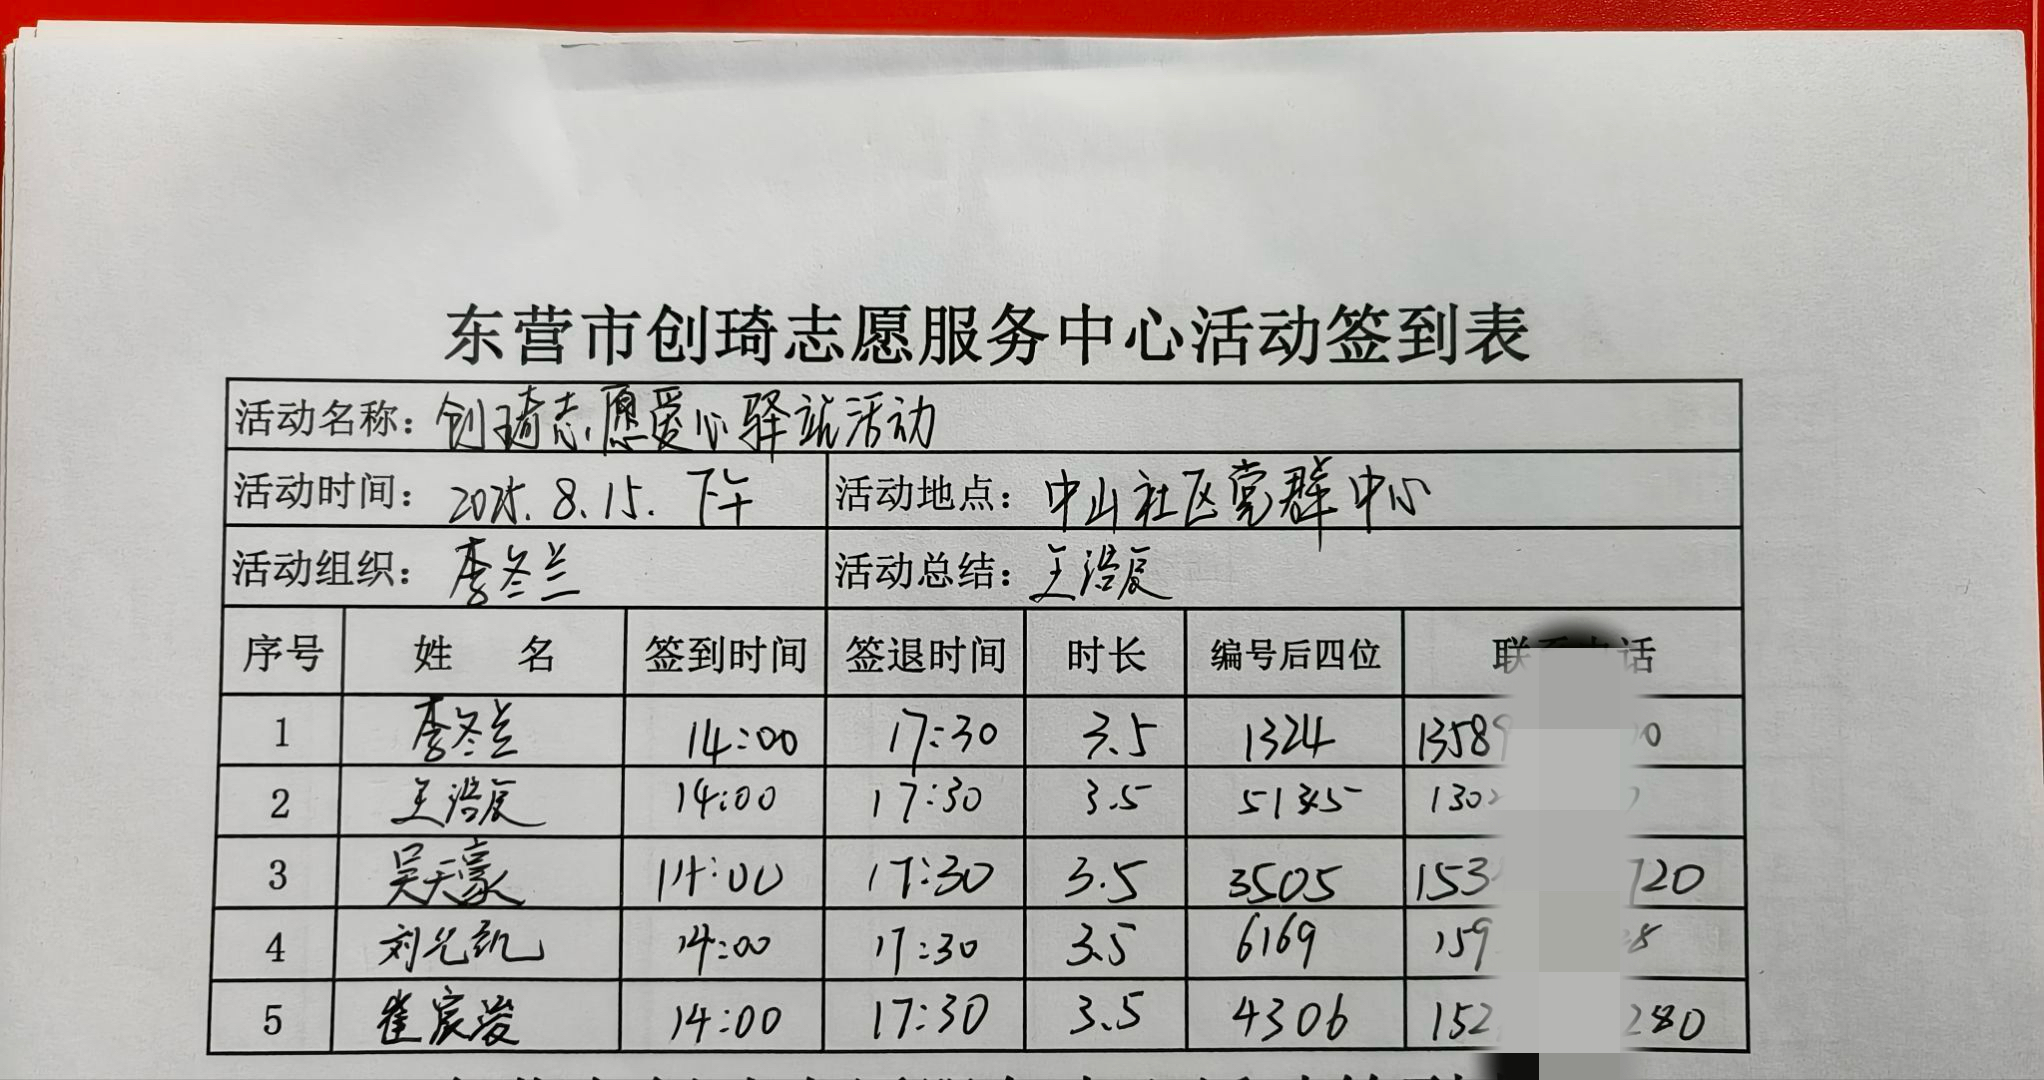 东营市创琦志愿服务中心活动签到表
活动名称：创琦志愿爱心驿站活动
活动时间：2025.8.15.下午 活动地点：中山社区党群中心
活动组织：李冬兰 活动总结：王浩辰
序号 姓 名 签到时间 签退时间 时长 编号后四位 联系电话
1 李冬兰 14:00 17:30 3.5 1324 13589
2 王浩辰 14:00 17:30 3.5 5135 130
3 吴天豪 14:00 17:30 3.5 3505 153 720
4 刘光凯 14:00 17:30 3.5 6169 159 8
5 崔宸浚 14:00 17:30 3.5 4306 152 280